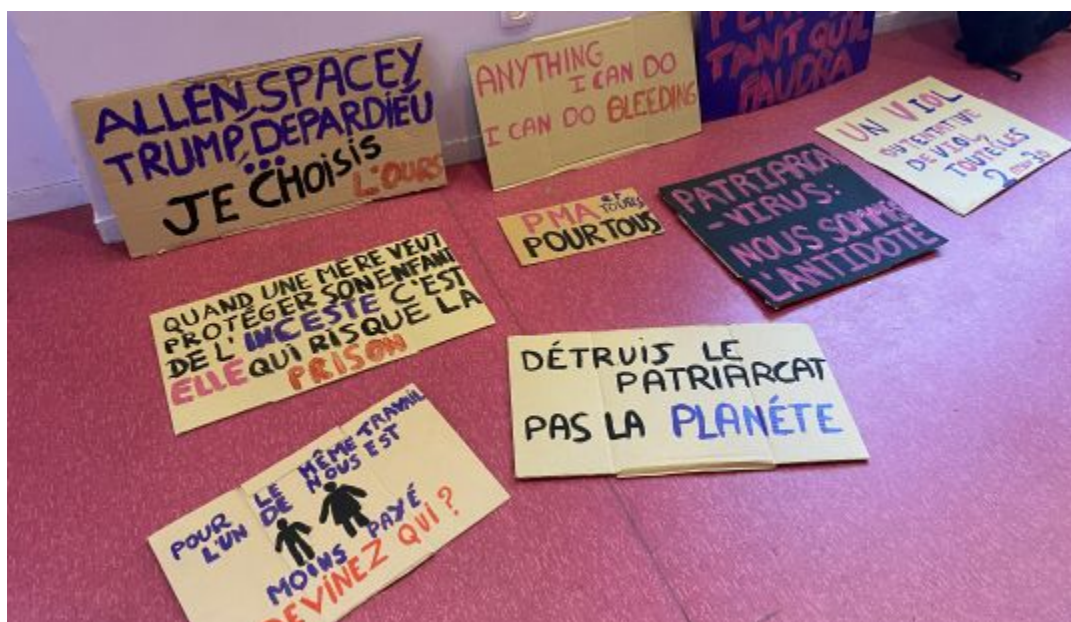 ALLEN, SPACEY
TRUMP, DEPARDIEU
...
JE CHOISIS
L'OURS
ANYTHING
I CAN DO
I CAN DO BLEEDING
TANT QU'IL
FAUDRA
UN VIOL
OU TENTATIVE
DE VIOL
TOUTE LES
2 mn 30
PMA et
TOURS
POUR TOUS
PATRIARCA
-VIRUS:
NOUS SOMMES
L'ANTIDOTE
QUAND UNE MÈRE VEUT
PROTÉGER SON ENFANT
DE L'INCESTE C'EST
ELLE QUI RISQUE LA
PRISON
DÉTRUIS LE
PATRIARCAT
PAS LA PLANÉTE
POUR LE MÊME TRAVAIL
L'UN DE NOUS EST
MOINS PAYÉ
DEVINEZ QUI ?